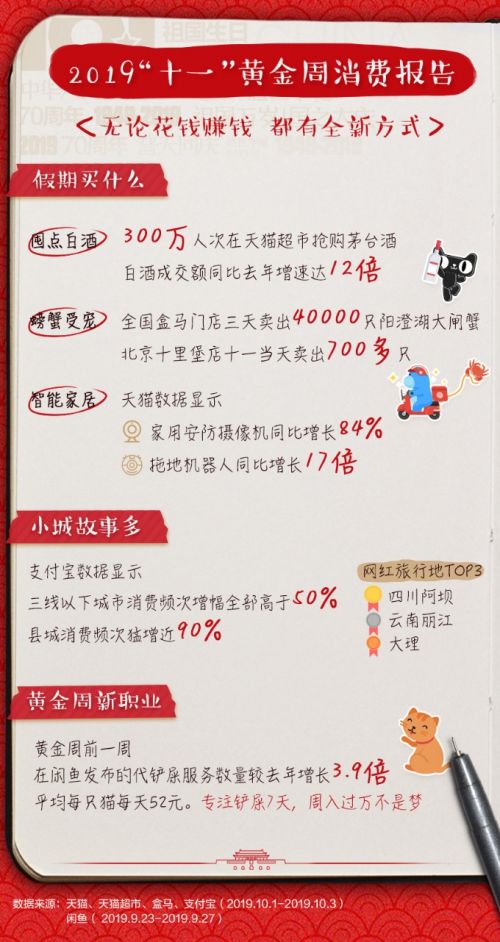 2019“十一”黄金周消费报告
<无论花钱赚钱 都有全新方式>
假期买什么
囤点白酒 300万人次在天猫超市抢购茅台酒
白酒成交额同比去年增速达12倍
螃蟹受宠 全国盒马门店三天卖出40000只阳澄湖大闸蟹
北京十里堡店十一当天卖出700多只
智能家居 天猫数据显示
家用安防摄像机同比增长84%
拖地机器人同比增长17倍
小城故事多
支付宝数据显示
三线以下城市消费频次增幅全部高于50%
县城消费频次猛增近90%
网红旅行地TOP3
四川阿坝
云南丽江
大理
黄金周新职业
黄金周前一周
在闲鱼发布的代铲屎服务数量较去年增长3.9倍
平均每只猫每天52元。专注铲屎7天，周入过万不是梦
数据来源：天猫、天猫超市、盒马、支付宝（2019.10.1-2019.10.3）
闲鱼（2019.9.23-2019.9.27）